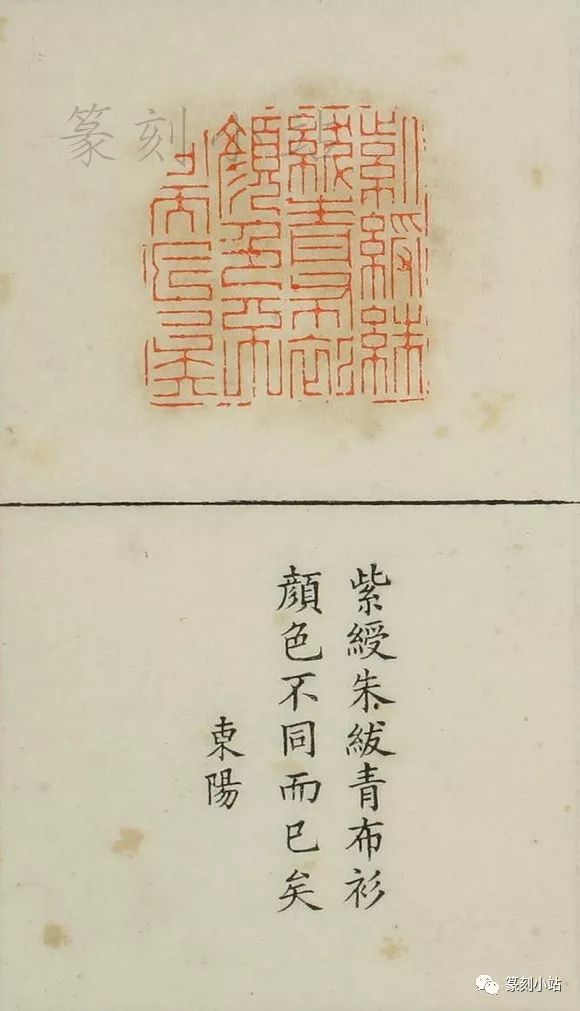 篆刻小站
紫綬朱紱青布衫
顏色不同而已矣
東陽
篆刻小站